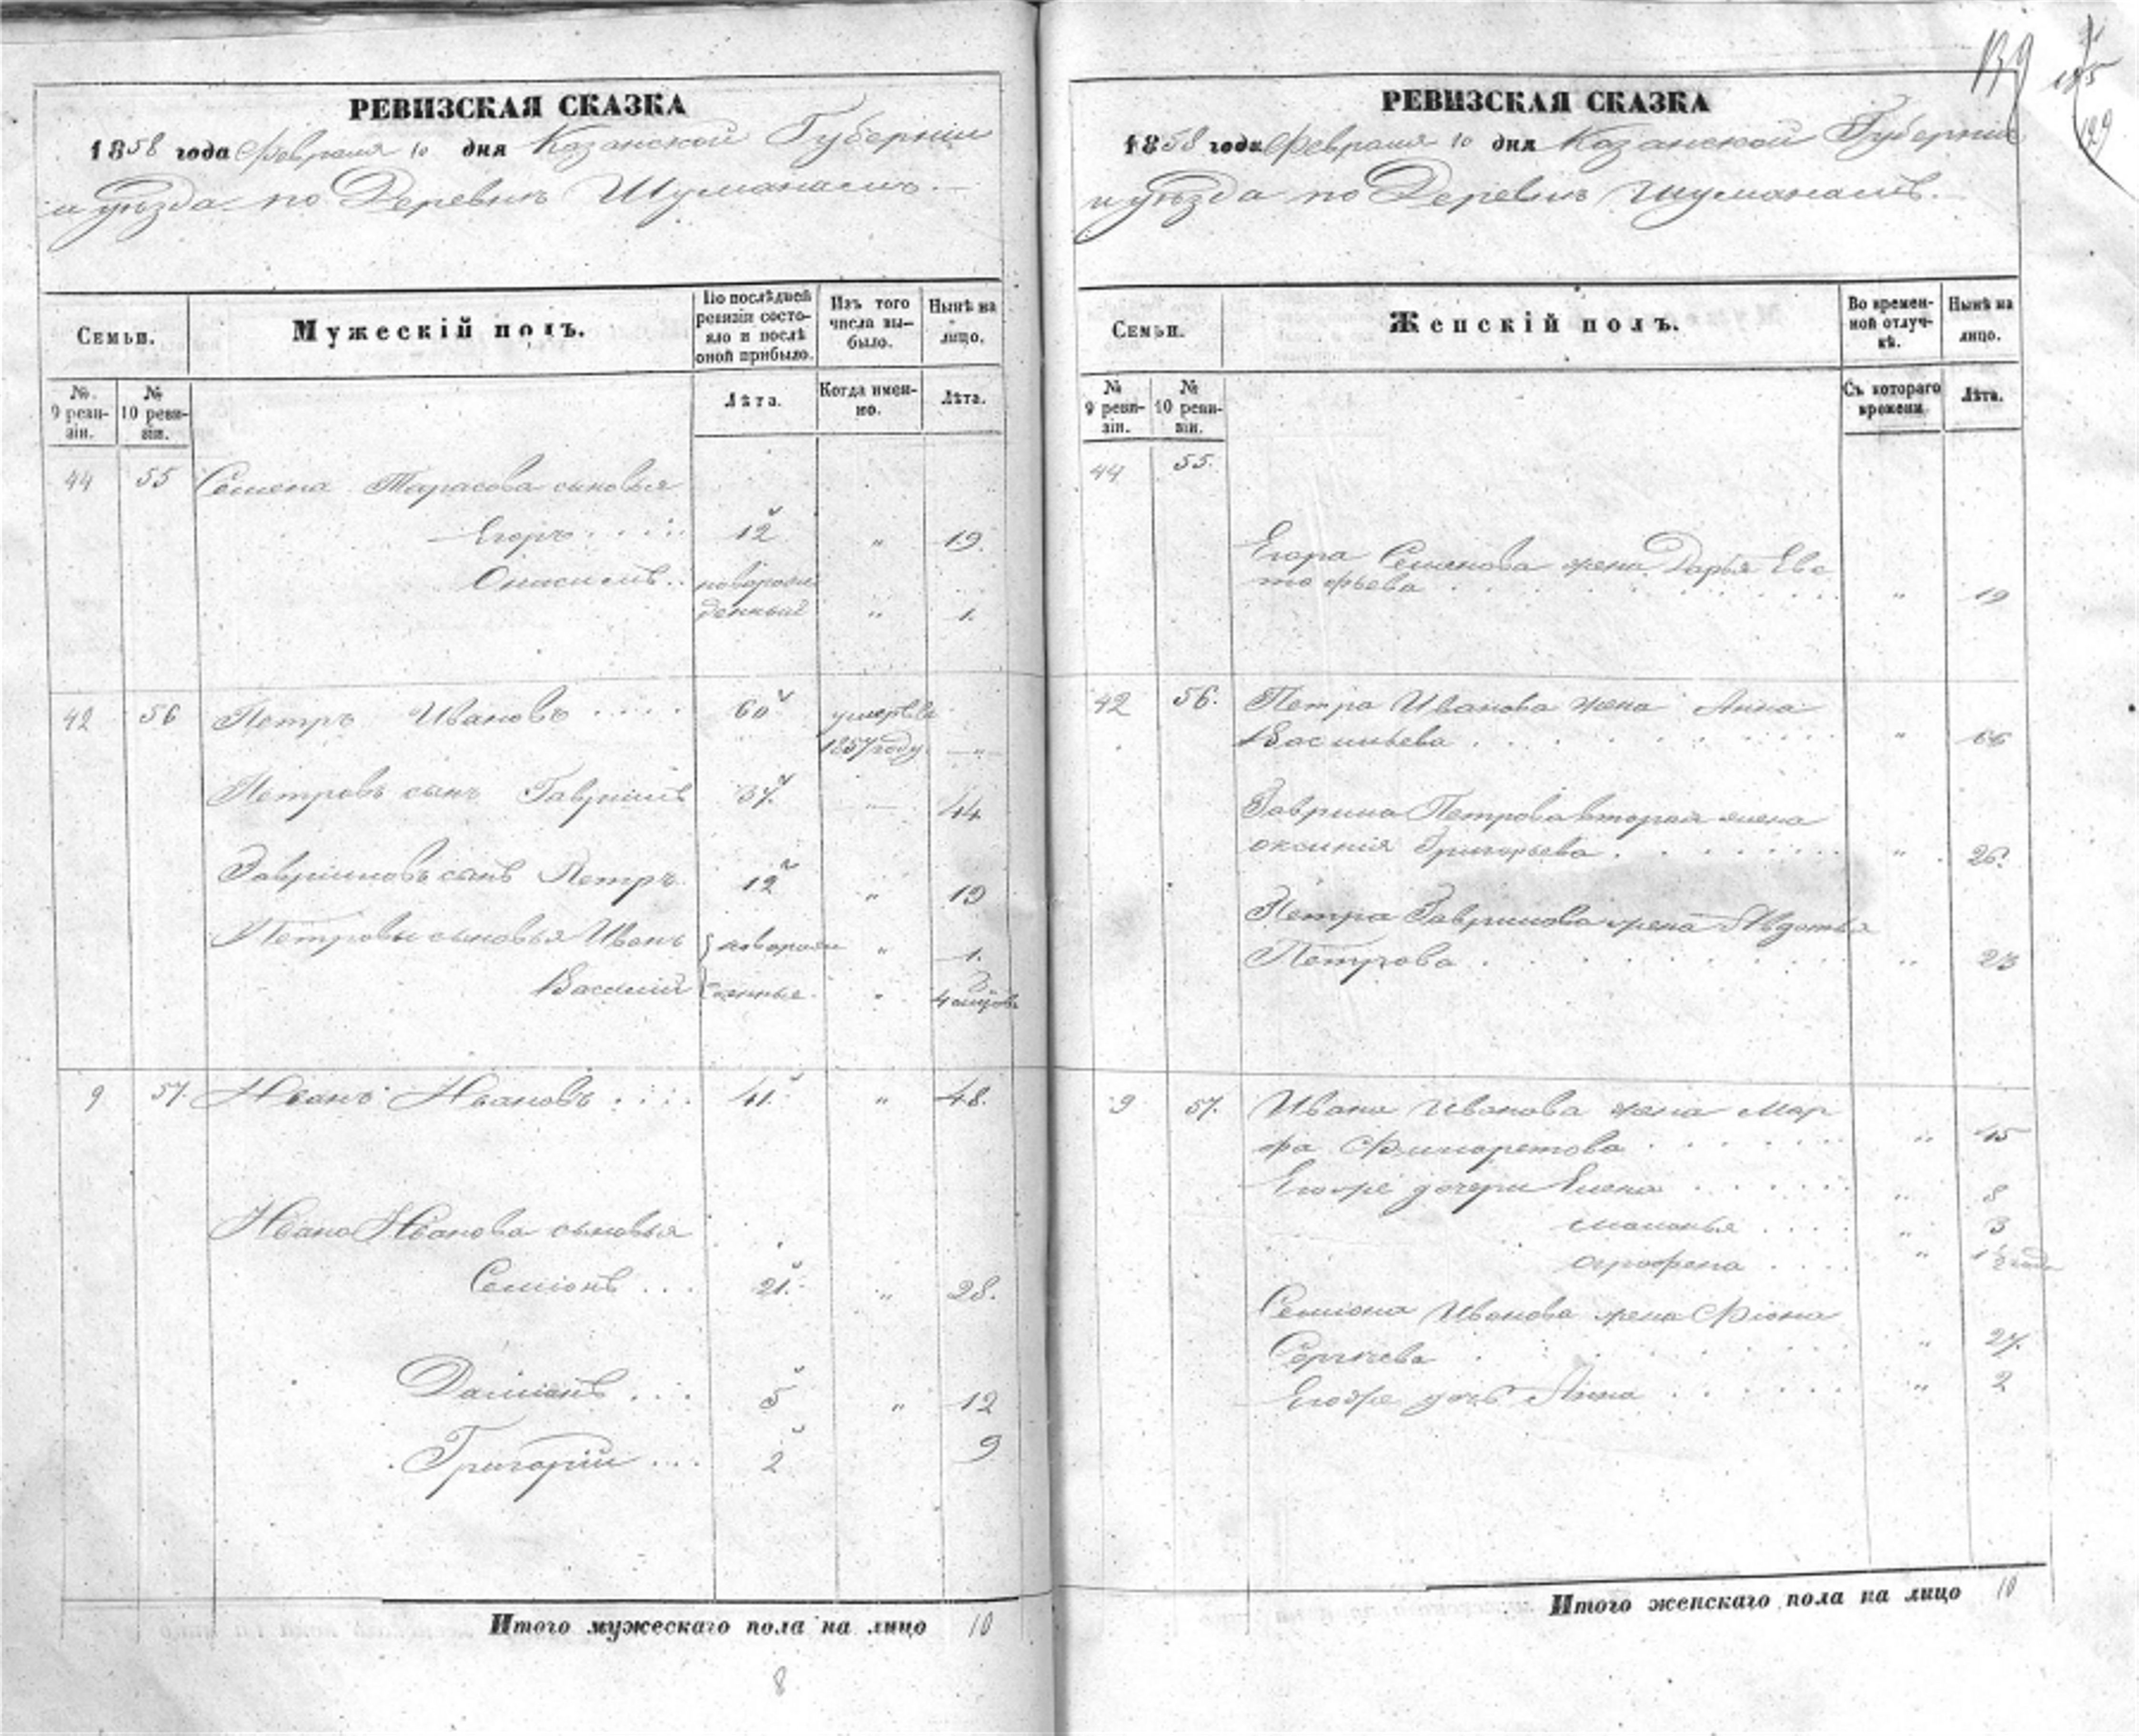 РЕВИЗСКАЯ СКАЗКА
1858 года Февраля 10 дня Казанской Губерніи
и уѣзда по Деревнѣ Шуманамъ.
Семьи.
Мужескій полъ.
По послѣдней ревизіи состояло и послѣ оной прибыло.
Изъ того числа выбыло.
Нынѣ на лицо.
№ 9 ревизіи.
№ 10 ревизіи.
Лѣта.
Когда именно.
Лѣта.
44 55 Семена Тарасова сыновья
Егоръ 12 " 19.
новорож
денный " 1.
42 56 Петръ Ивановъ 60 умеръ въ
1857 году —"—
Петровъ сынъ Гавріилъ 37. — 44
Гавріиловъ сынъ Петръ 12 " 19
Петровы сыновья Иванъ новорож " 1.
Василій денные " 4
9 57. Иванъ Ивановъ 41. " 48.
Ивана Иванова сыновья
Семіонъ 21. " 28.
Даміанъ 5 " 12
Григорій 2 9
Итого мужескаго пола на лицо 10
8
139
129
РЕВИЗСКАЯ СКАЗКА
1858 года Февраля 10 дня Казанской Губерніи
и уѣзда по Деревнѣ Шуманамъ.
Семьи.
Женскій полъ.
Во временной отлучкѣ.
Нынѣ на лицо.
№ 9 ревизіи.
№ 10 ревизіи.
Съ котораго времени
Лѣта.
44 55.
Егора Семенова жена Дарья Евс
" 19
42 56. Петра Иванова жена Анна
Васильева " 66
Гаврила Петрова вторая жена
оксинія Григорьева " 26.
Петра Гаврилова жена Авдотья
Петрова " 23
9 57. Ивана Иванова жена Мар
фа Филаретова " 45
Егоже дочери Елена " 8
маланья " 3
аграфена " 1 1/2 года
Семіона Иванова жена Фіона
Сергѣева " 27.
Егоже дочь Анна " 2
Итого женскаго пола на лицо 10